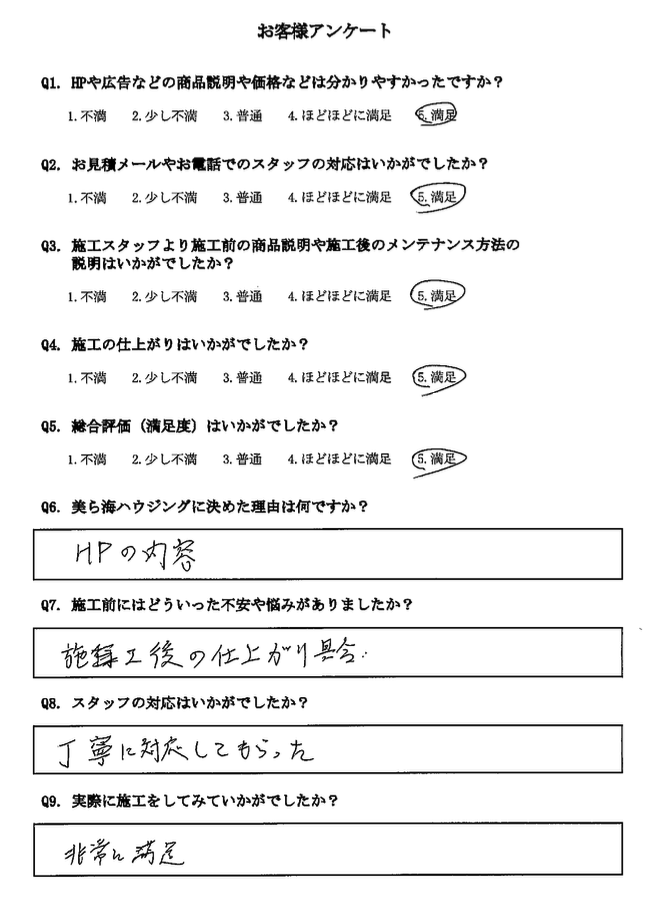 お客様アンケート
Q1. HPや広告などの商品説明や価格などは分かりやすかったですか？
1. 不満 2. 少し不満 3. 普通 4. ほどほどに満足 5. 満足
Q2. お見積メールやお電話でのスタッフの対応はいかがでしたか？
1. 不満 2. 少し不満 3. 普通 4. ほどほどに満足 5. 満足
Q3. 施工スタッフより施工前の商品説明や施工後のメンテナンス方法の
説明はいかがでしたか？
1. 不満 2. 少し不満 3. 普通 4. ほどほどに満足 5. 満足
Q4. 施工の仕上がりはいかがでしたか？
1. 不満 2. 少し不満 3. 普通 4. ほどほどに満足 5. 満足
Q5. 総合評価（満足度）はいかがでしたか？
1. 不満 2. 少し不満 3. 普通 4. ほどほどに満足 5. 満足
Q6. 美ら海ハウジングに決めた理由は何ですか？
HPの内容
Q7. 施工前にはどういった不安や悩みがありましたか？
施工後の仕上がり具合
Q8. スタッフの対応はいかがでしたか？
丁寧に対応してもらった
Q9. 実際に施工をしてみていかがでしたか？
非常に満足